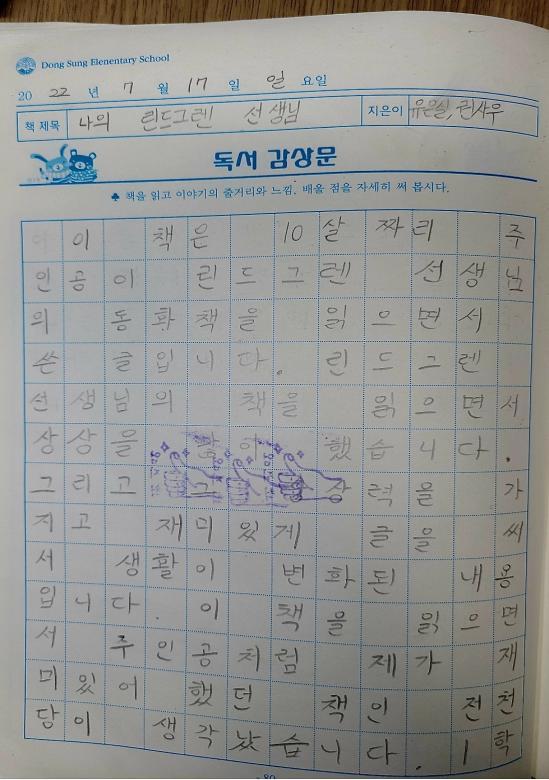 Dong Sung Elenentary School
20 22 년 7 월 17 일 일 요일
책 제목 나의 린드그렌 선생님 지은이 유은실, 권사우
독서 감상문
♣ 책을 읽고 이야기의 줄거리와 느낌, 배울 점을 자세히 써 봅시다.
이 책은 10살 짜리 주
인공이 린드그렌 선생님
의 동화책을 읽으면서
쓴 글입니다. 린드그렌
선생님의 책을 읽으면서
상상을 많이 했습니다.
그리고 그 력을 가
지고 재미있게 글을 써
서 생활이 변화된 내용
입니다. 이 책을 읽으면
서 주인공처럼 제가 재
미있어 했던 책인 전천
당이 생각났습니다. 1학
80